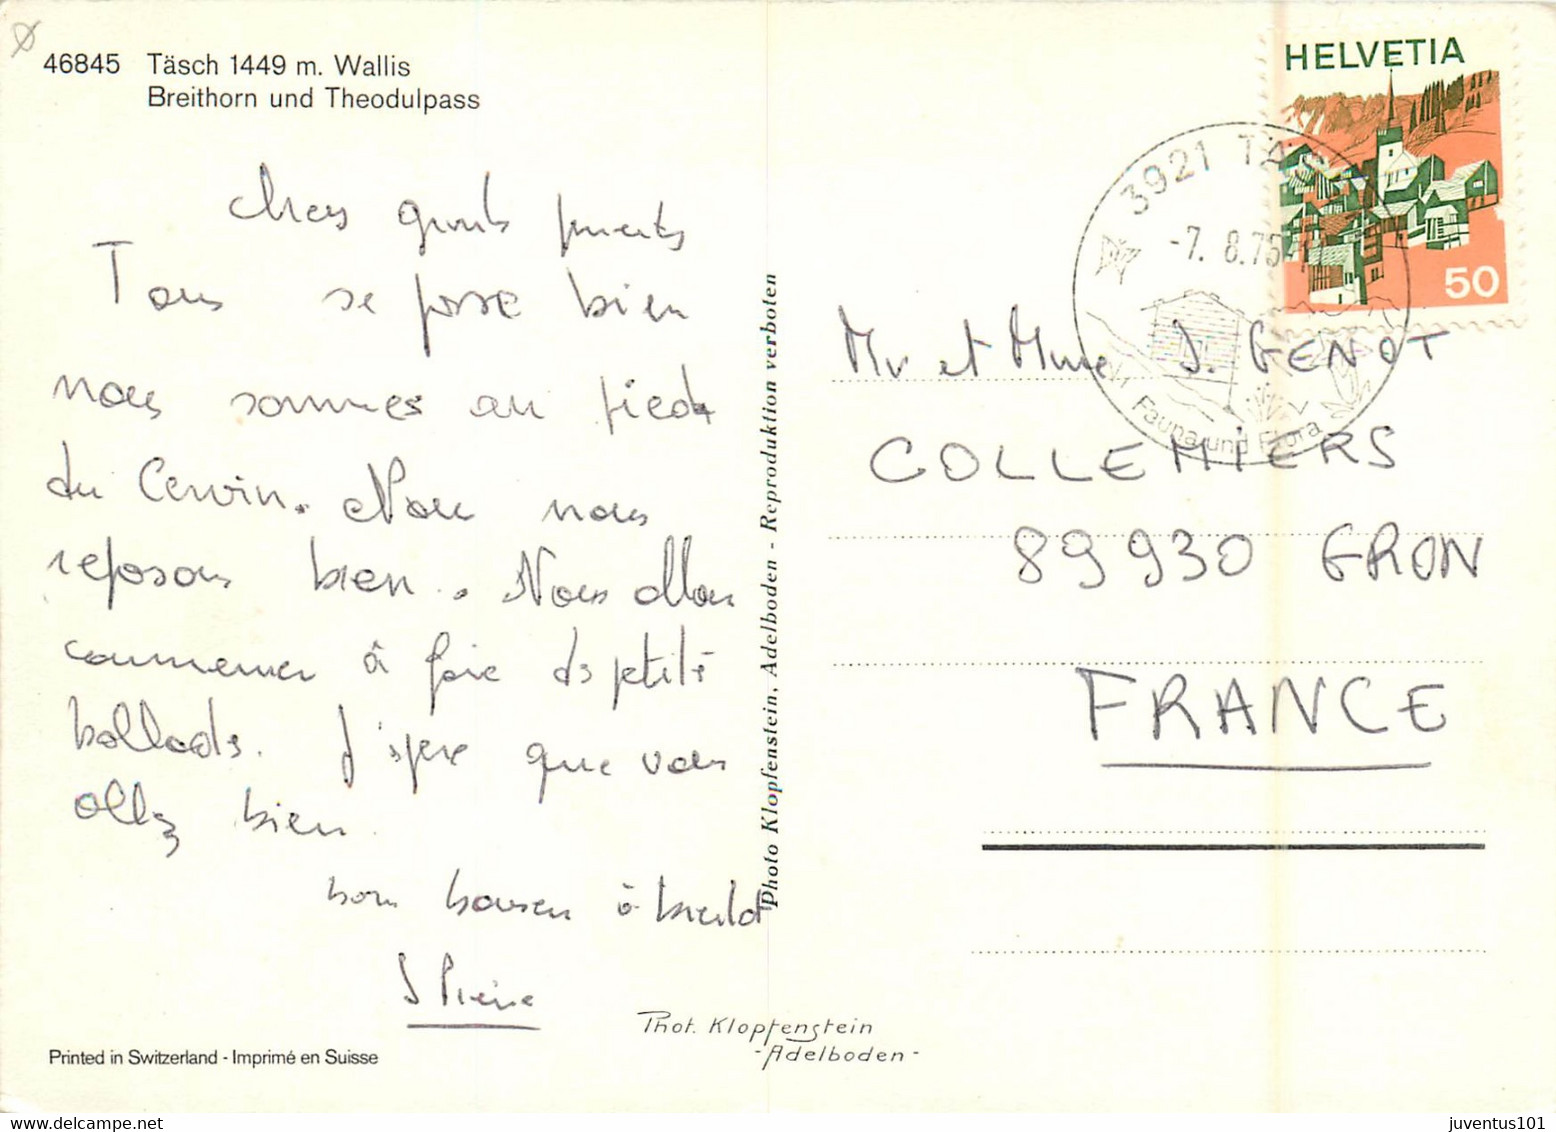 46845 Täsch 1449 m. Wallis
Breithorn und Theodulpass
Chers grands parents
Tous se passe bien
nous sommes au pied
du Cervin. Nous nous
reposons bien. Nous allons
commencer à faire des petites
ballades. J'espère que vous
allez bien.
bon baiser à bientôt
J Pierre
Printed in Switzerland - Imprimé en Suisse
Photo Klopfenstein, Adelboden - Reproduktion verboten
Phot. Klopfenstein
- Adelboden -
HELVETIA
50
3921 TÄS
-7. 8.75
Fauna und Flora
Mr et Mme J. GENOT
COLLEMIERS
89930 GRON
FRANCE
juventus101